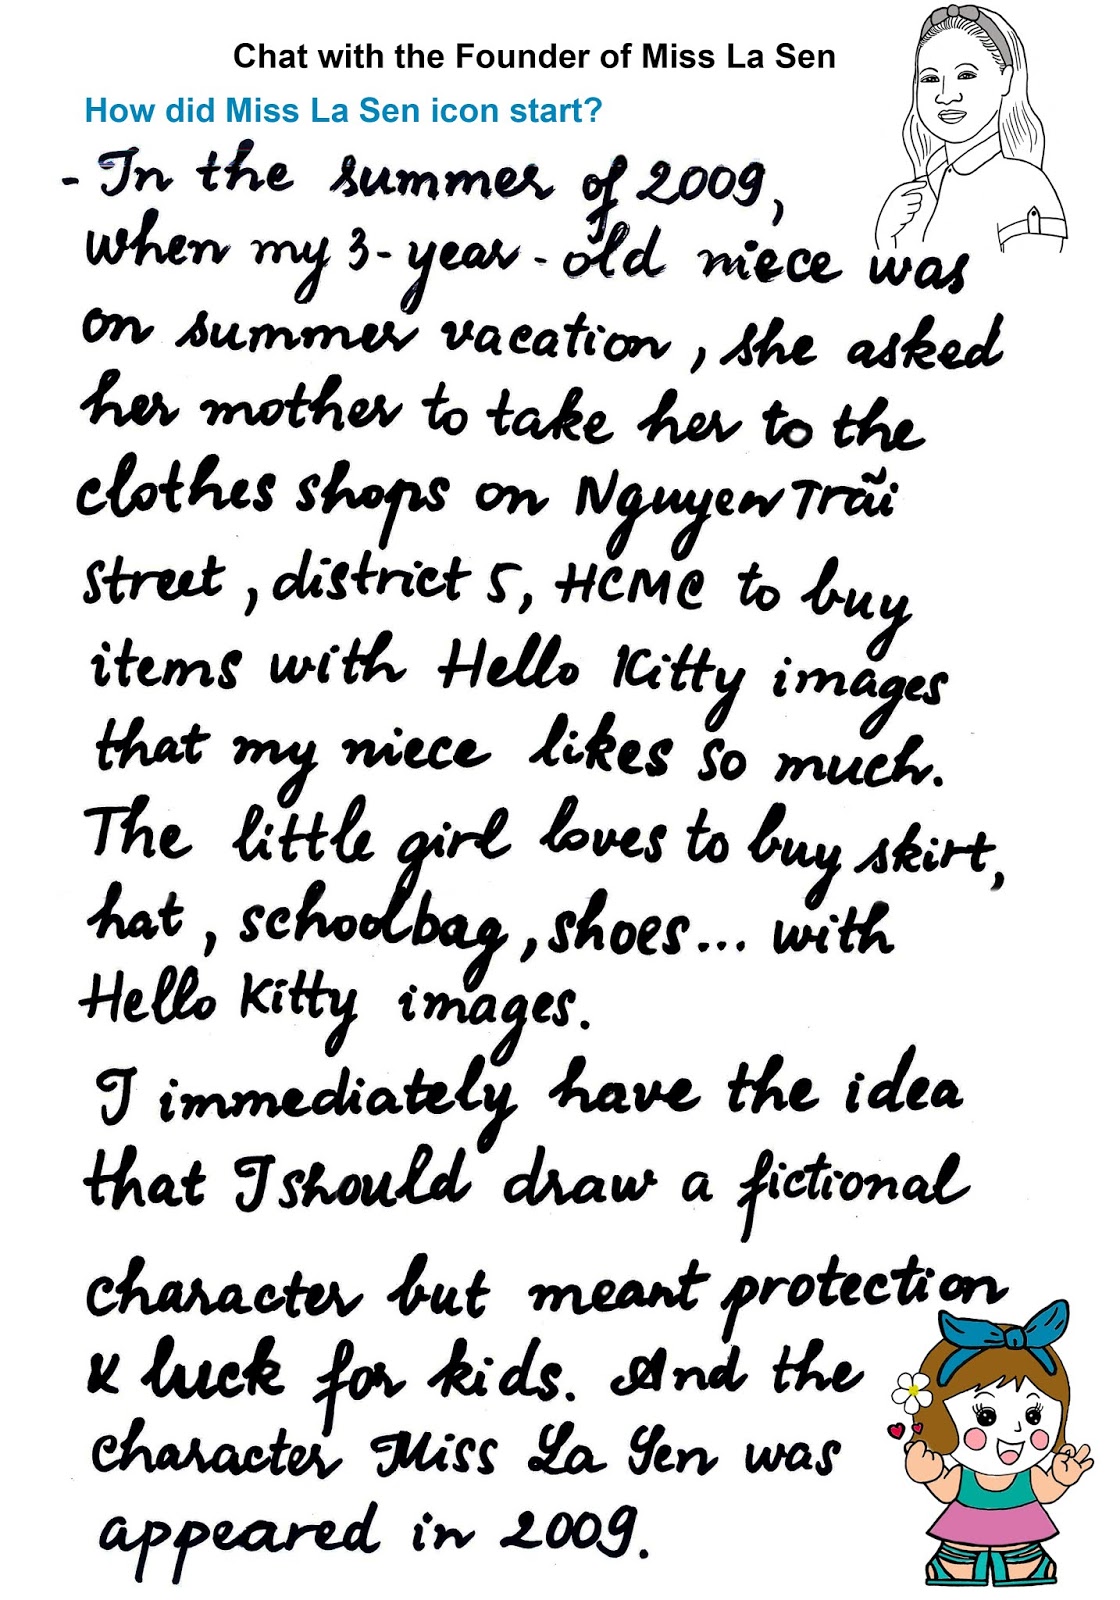 Chat with the Founder of Miss La Sen
How did Miss La Sen icon start?
- In the summer of 2009,
when my 3-year-old niece was
on summer vacation, she asked
her mother to take her to the
clothes shops on Nguyen Trãi
street, district 5, HCMC to buy
items with Hello Kitty images
that my niece likes so much.
The little girl loves to buy skirt,
hat, schoolbag, shoes... with
Hello Kitty images.
I immediately have the idea
that I should draw a fictional
character but meant protection
& luck for kids. And the
character Miss La Sen was
appeared in 2009.